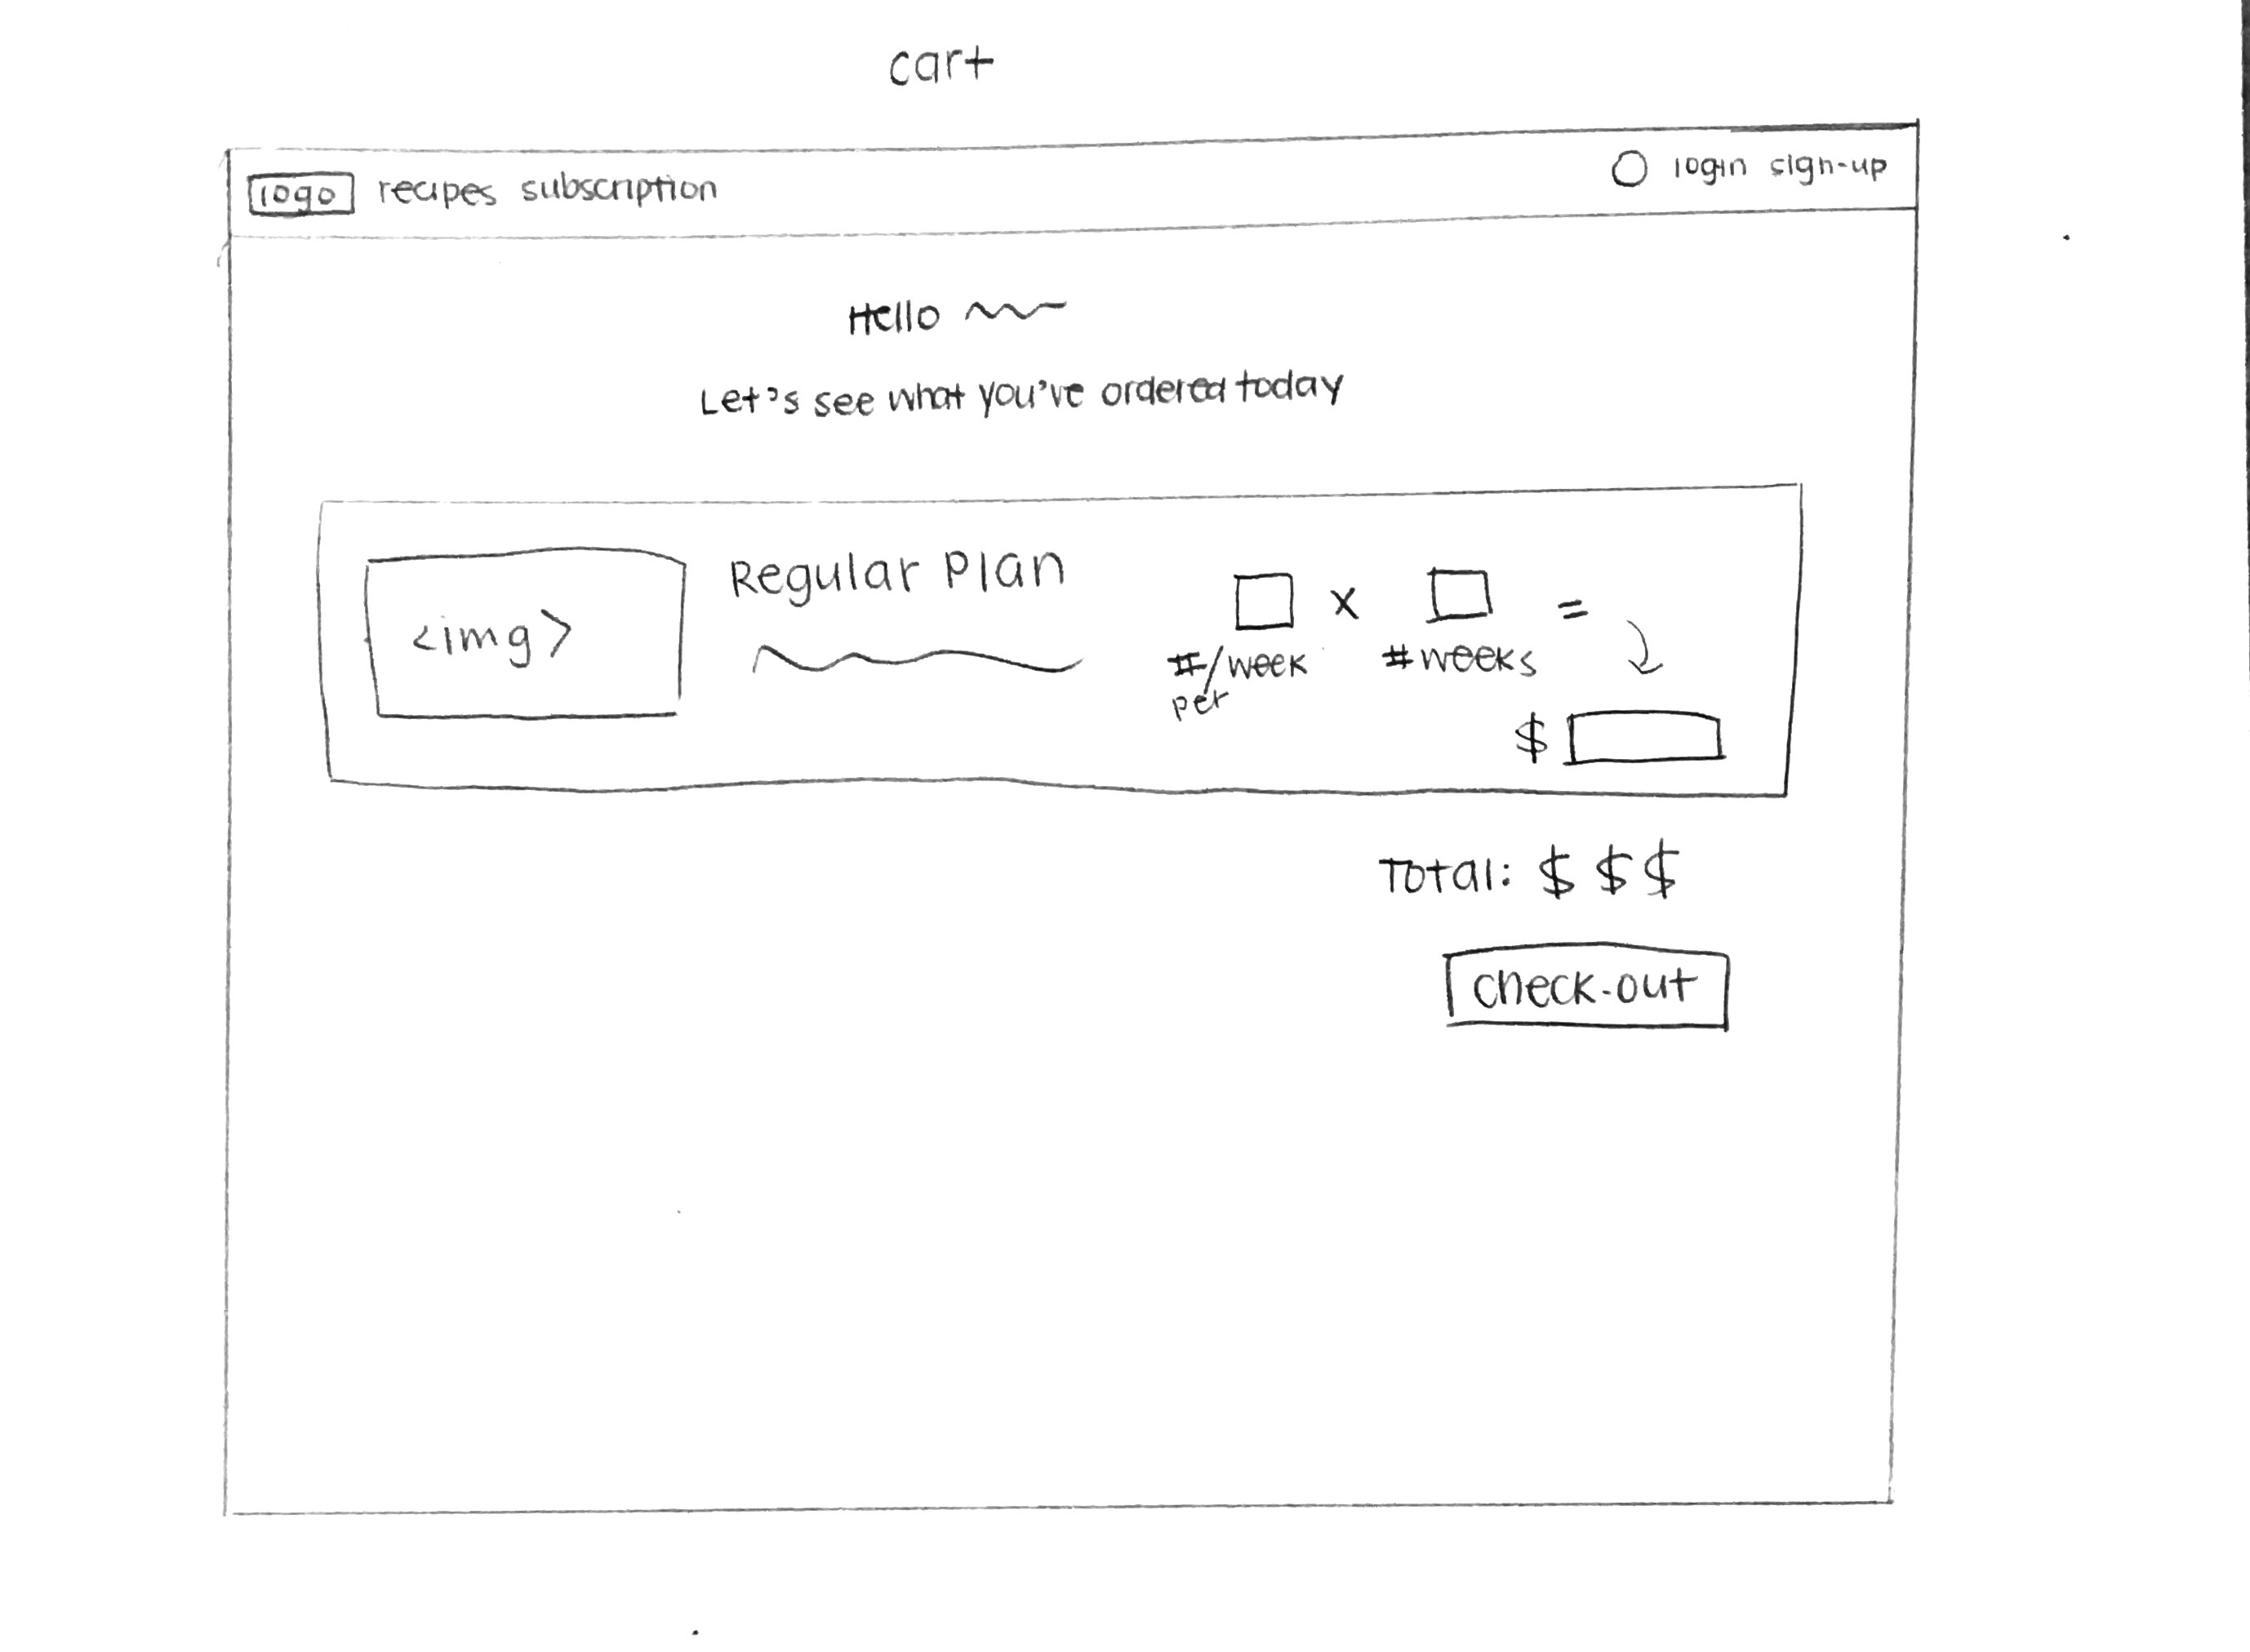 cart
logo recipes subscription
login sign-up
Hello
Let's see what you've ordered today
<img>
Regular Plan
x
=
#/week
per
#weeks
$
Total: $ $ $
check-out